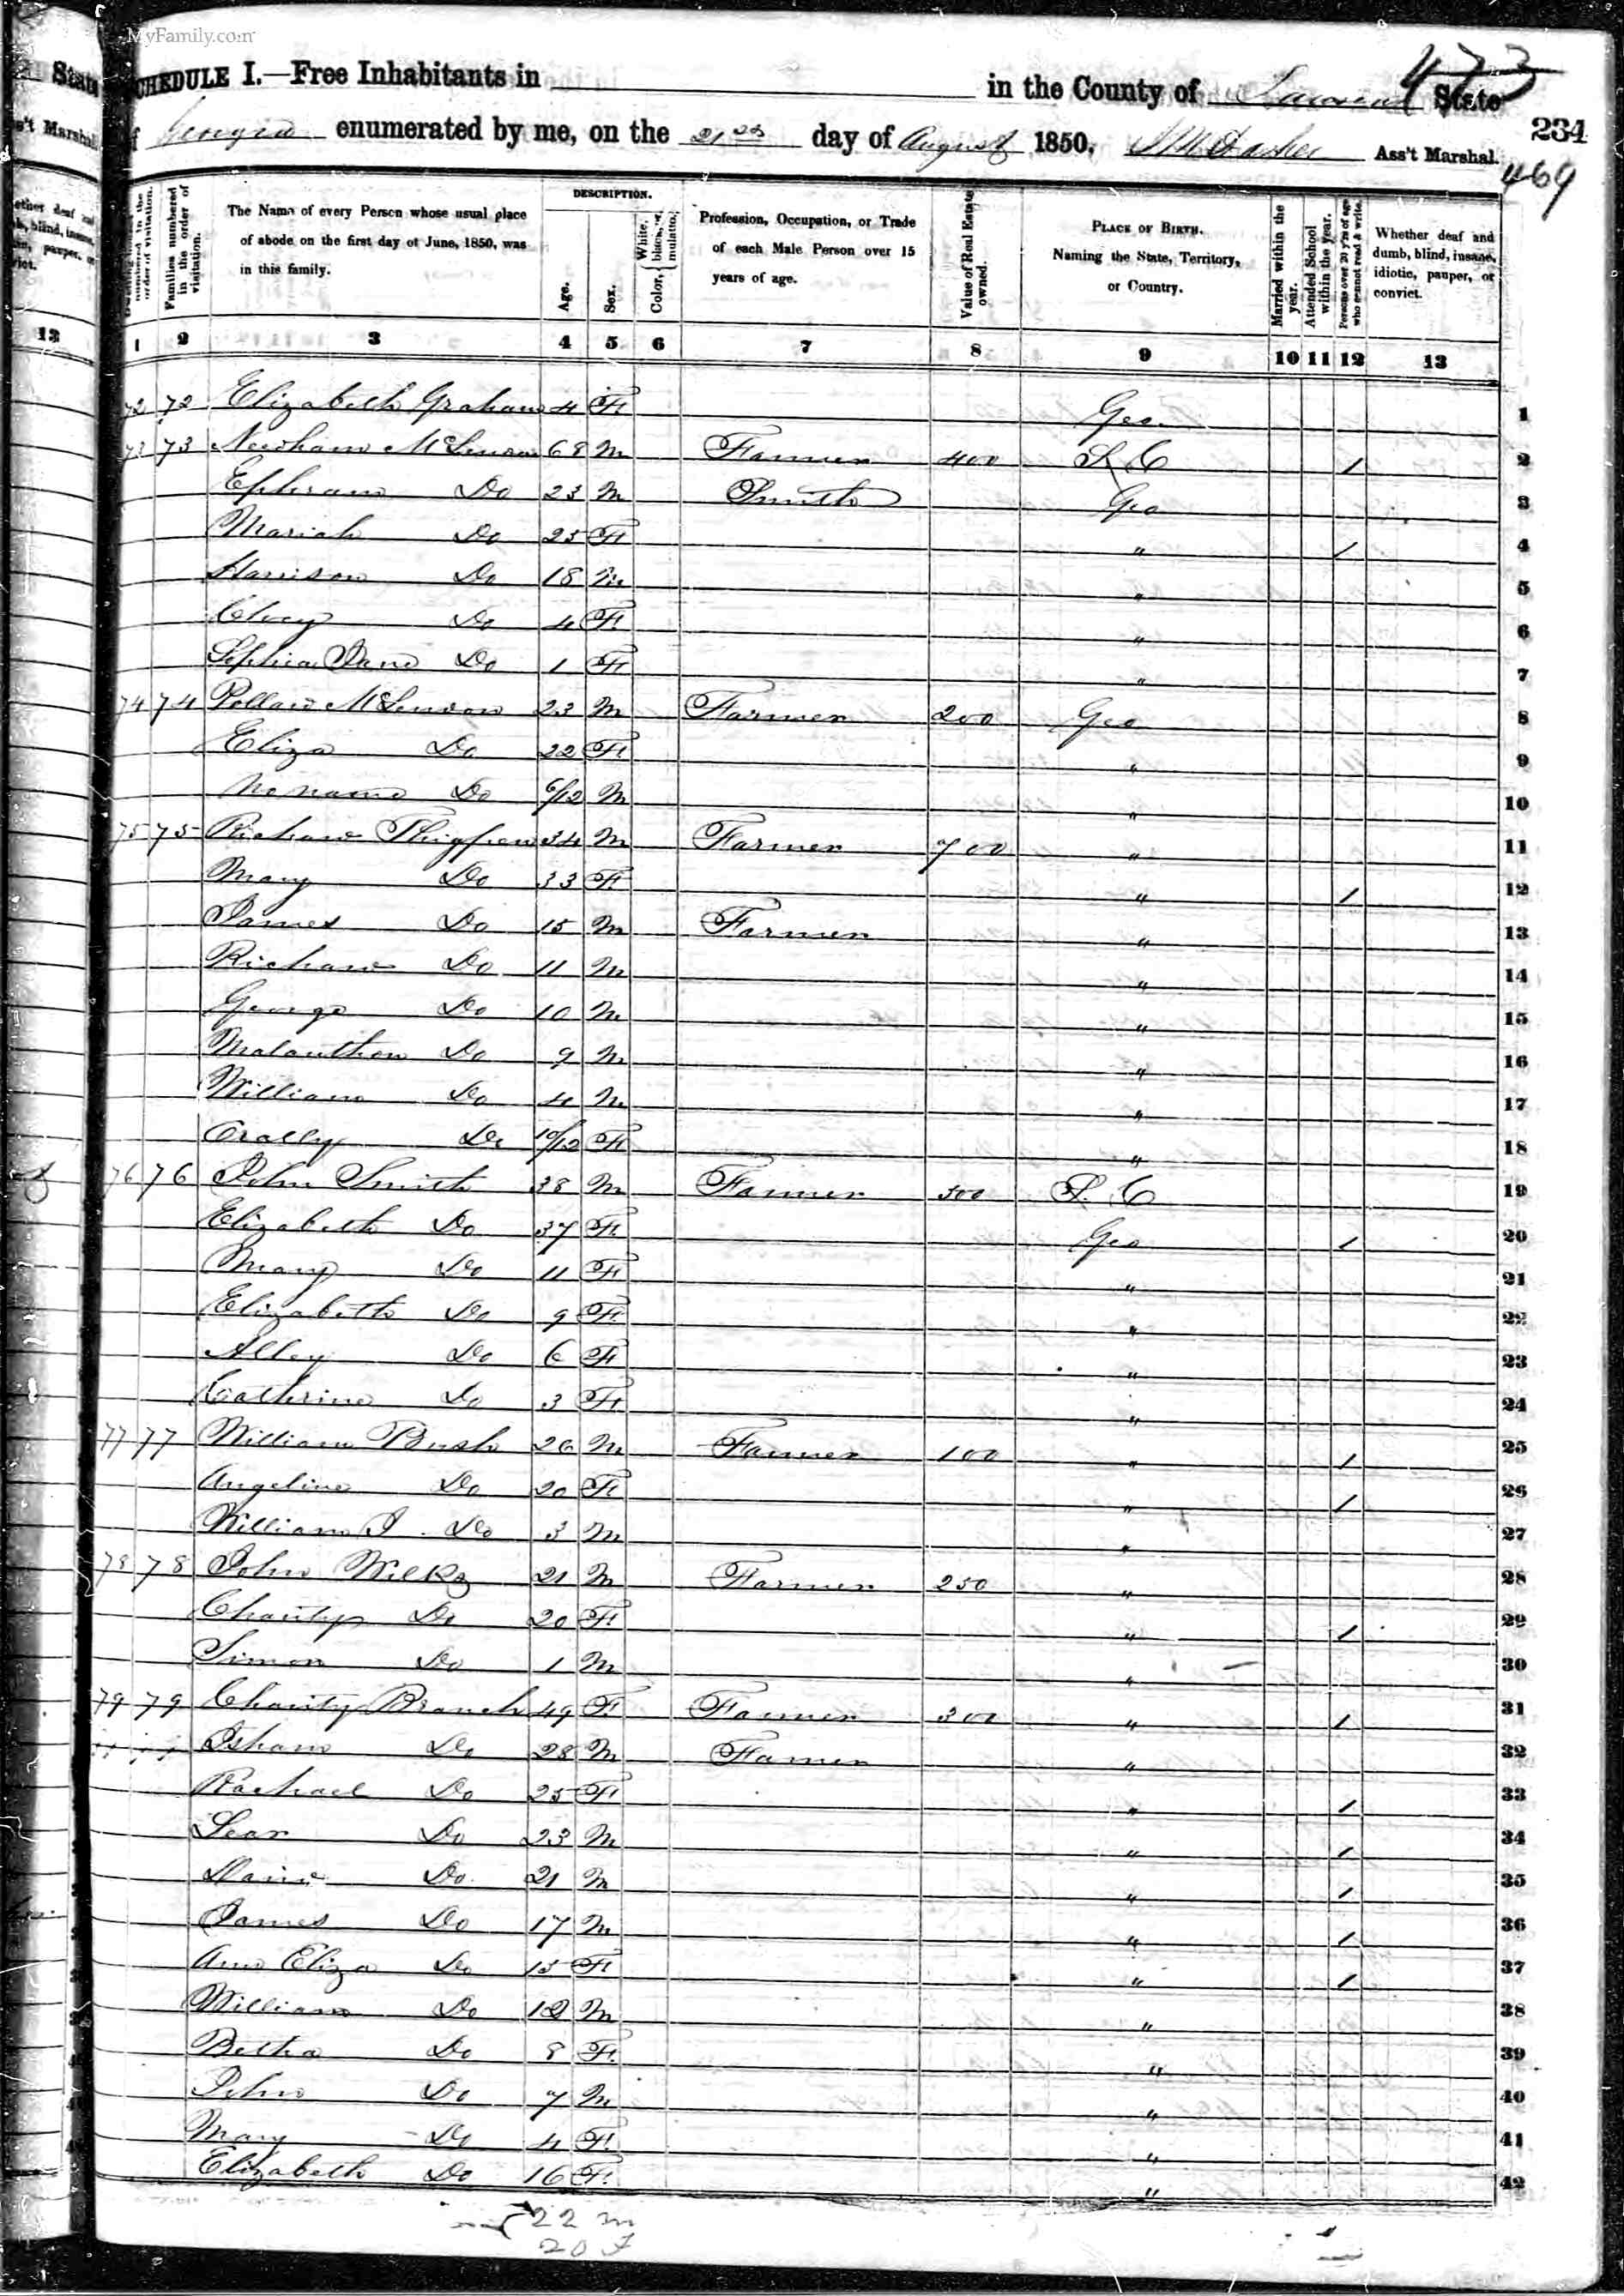 MyFamily.com
473
SCHEDULE I.—Free Inhabitants in in the County of Laurens State
of Georgia enumerated by me, on the 21st day of August 1850. Ass't Marshal.
234
469
DESCRIPTION.
Families numbered in the order of visitation.
The Name of every Person whose usual place of abode on the first day of June, 1850, was in this family.
Age.
Sex.
Color, { White, black, or mulatto.
Profession, Occupation, or Trade of each Male Person over 15 years of age.
Value of Real Estate owned.
PLACE OF BIRTH. Naming the State, Territory, or Country.
Married within the year.
Attended School within the year.
Persons over 20 y'rs of age who cannot read & write.
Whether deaf and dumb, blind, insane, idiotic, pauper, or convict.
1 2 3 4 5 6 7 8 9 10 11 12 13
72 72 Elizabeth Graham 4 F Geo. 1
73 73 Needham McLendon 68 M Farmer 400 S C / 2
Ephraim Do 23 M Smith Geo 3
Mariah Do 25 F " / 4
Harrison Do 18 M " 5
Do 4 F " 6
Sophia Jane Do 1 F " 7
74 74 McLendon 23 M Farmer 200 Geo 8
Eliza Do 22 F " 9
No name Do 6/12 M " 10
75 75 Richard Thigpen 34 M Farmer 700 " 11
Mary Do 33 F " / 12
James Do 15 M Farmer " 13
Richard Do 11 M " 14
George Do 10 M " 15
Malanthon Do 9 M " 16
William Do 4 M " 17
Do 10/12 F " 18
76 76 John Smith 38 M Farmer 300 S. C 19
Elizabeth Do 37 F Geo / 20
Mary Do 11 F " 21
Elizabeth Do 9 F " 22
Alley Do 6 F " 23
Cathrine Do 3 F " 24
77 77 William Bush 26 M Farmer 100 " / 25
Angeline Do 20 F " / 26
William J. Do 3 M " 27
78 78 John Wilks 21 M Farmer 250 " 28
Charity Do 20 F " / 29
Simon Do 1 M " 30
79 79 Charity Branch 49 F Farmer 300 " / 31
Isham Do 28 M Farmer " 32
Rachael Do 25 F " / 33
Do 23 M " / 34
David Do 21 M " / 35
James Do 17 M " / 36
Ann Eliza Do 15 F " / 37
William Do 12 M " 38
Betha Do 8 F " 39
John Do 7 M " 40
Mary Do 4 F " 41
Elizabeth Do 16 F " 42
22 m
20 F